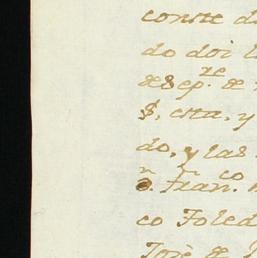 conste d
do doi l
de sep.re de
$, cita, y
do, y las
n. Fran.co
co Foled
Jose de